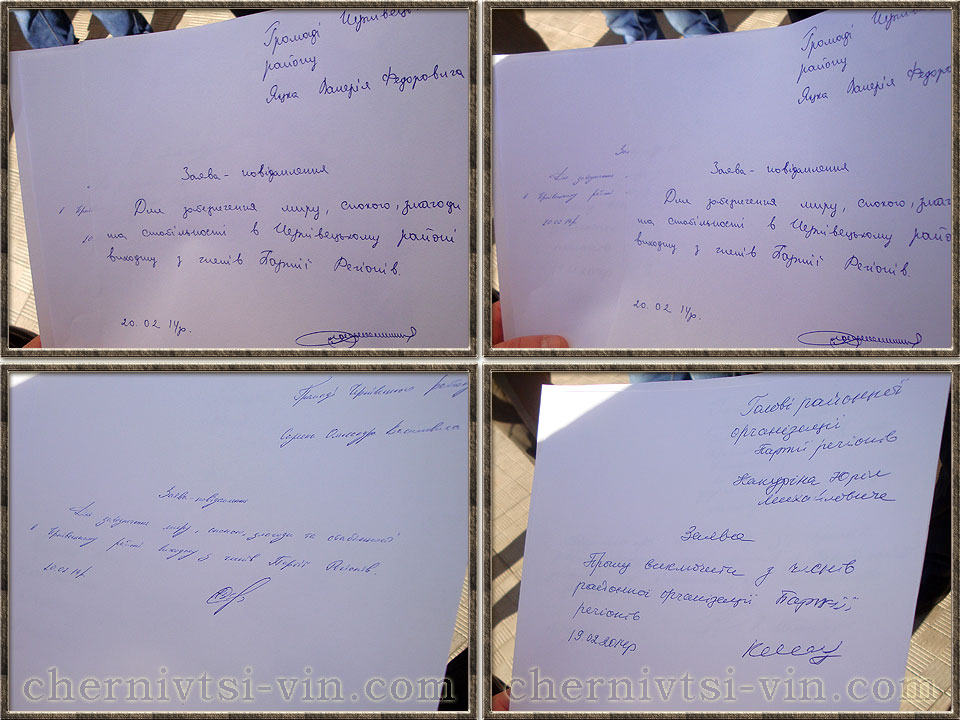 Громаді Чернівець
району
Яцка Валерія Федоровича
Заява - повідомлення
Для збереження миру, спокою, злагоди
та стабільності в Чернівецькому районі
виходжу з членів Партії Регіонів.
20.02 14р.
Громаді Чернівец
району
Яцка Валерія Федоровича
Заява - повідомлення
Для збереження миру, спокою, злаг
та стабільності в Чернівецькому райо
виходжу з членів Партії Регіонів.
20.02 14р.
Громаді Чернівецького району
Олександра
Заява-повідомлення
Для збереження миру, спокою, злагоди та стабільності
Чернівецькому районі виходжу з членів Партії Регіонів.
20.02 14р.
Голові районної
організації
Партії регіонів
Юрія
Михайловича
Заява
Прошу виключити з членів
районної організації Партії
регіонів
19.02.2014р
chernivtsi-vin.com
chernivtsi-vin.com